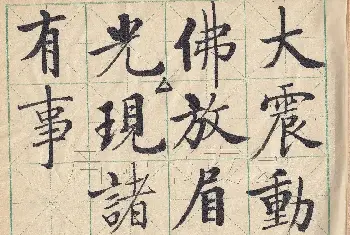 大震動
佛放眉
光現諸
有事